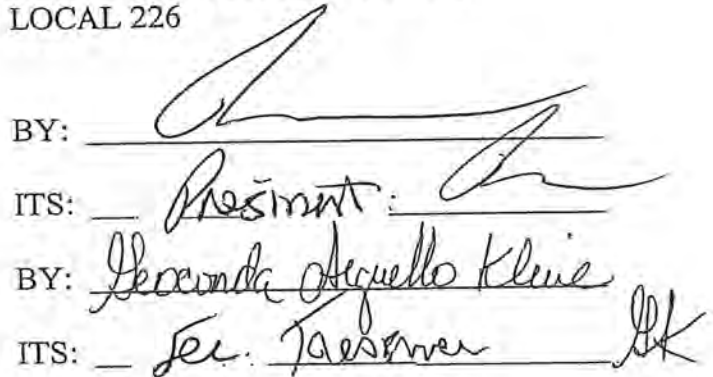 LOCAL 226
BY:
ITS: President
BY: Geoconda Arguello Kline
ITS: Sec. Treasurer GK